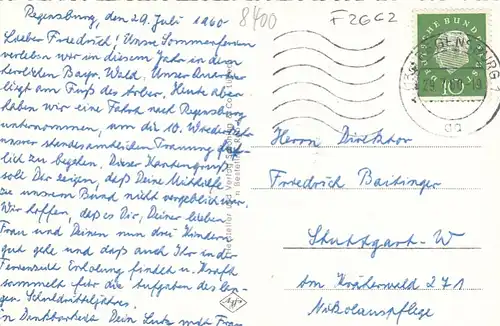 Regensburg, den 29. Juli 1960
8400
F 2602
Lieber Friedrich! Unsre Sommerferien
verleben wir in diesem Jahr in dem
herrlichen Bayr. Wald. Unser Quartier
liegt am Fuß des Arber. Heute aber
haben wir eine Fahrt nach Regensburg
unternommen, um die 10. Wiederkehr
unsrer standesamtlichen Trauung
lich zu begehen. Dieser Kartengruß
soll Dir zeigen, daß Deine Mithilfe
zu unserem Bund nicht vergeblich war.
Wir hoffen, daß es Dir, Deiner lieben
Frau und Deinen nun drei Kindern
gut gehe und daß auch Ihr in der
Ferienzeit Erholung findet u. Kraft
sammelt für die Aufgaben des
gen Schuldrittjahres.
In Dankbarkeit Dein Lutz mit Frau
DEUTSCHE BUNDESPOST
10
REGENSBURG 1
Herrn Direktor
Friedrich Baitinger
Stuttgart-W
Am Kräherwald 271
Nikolauspflege